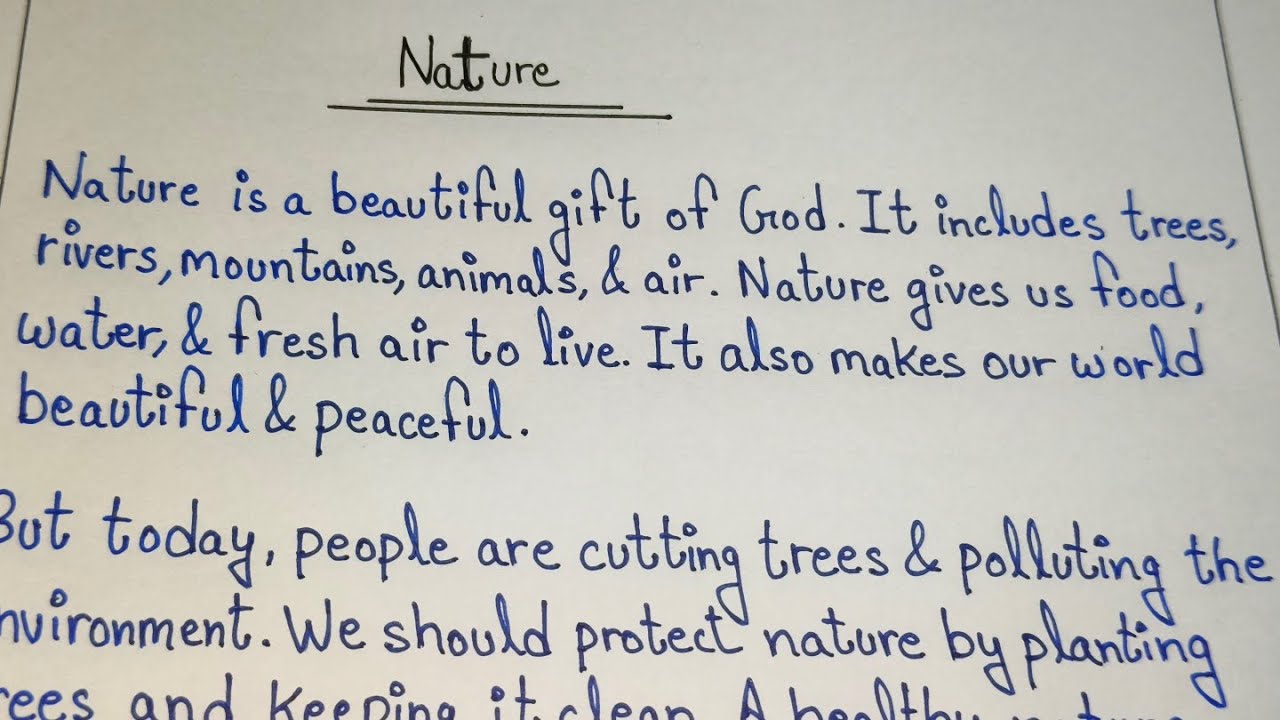 Nature
Nature is a beautiful gift of God. It includes trees,
rivers, mountains, animals, & air. Nature gives us food,
water, & fresh air to live. It also makes our world
beautiful & peaceful.
But today, people are cutting trees & polluting the
nvironment. We should protect nature by planting
rees and keeping it clean. A healthy nature